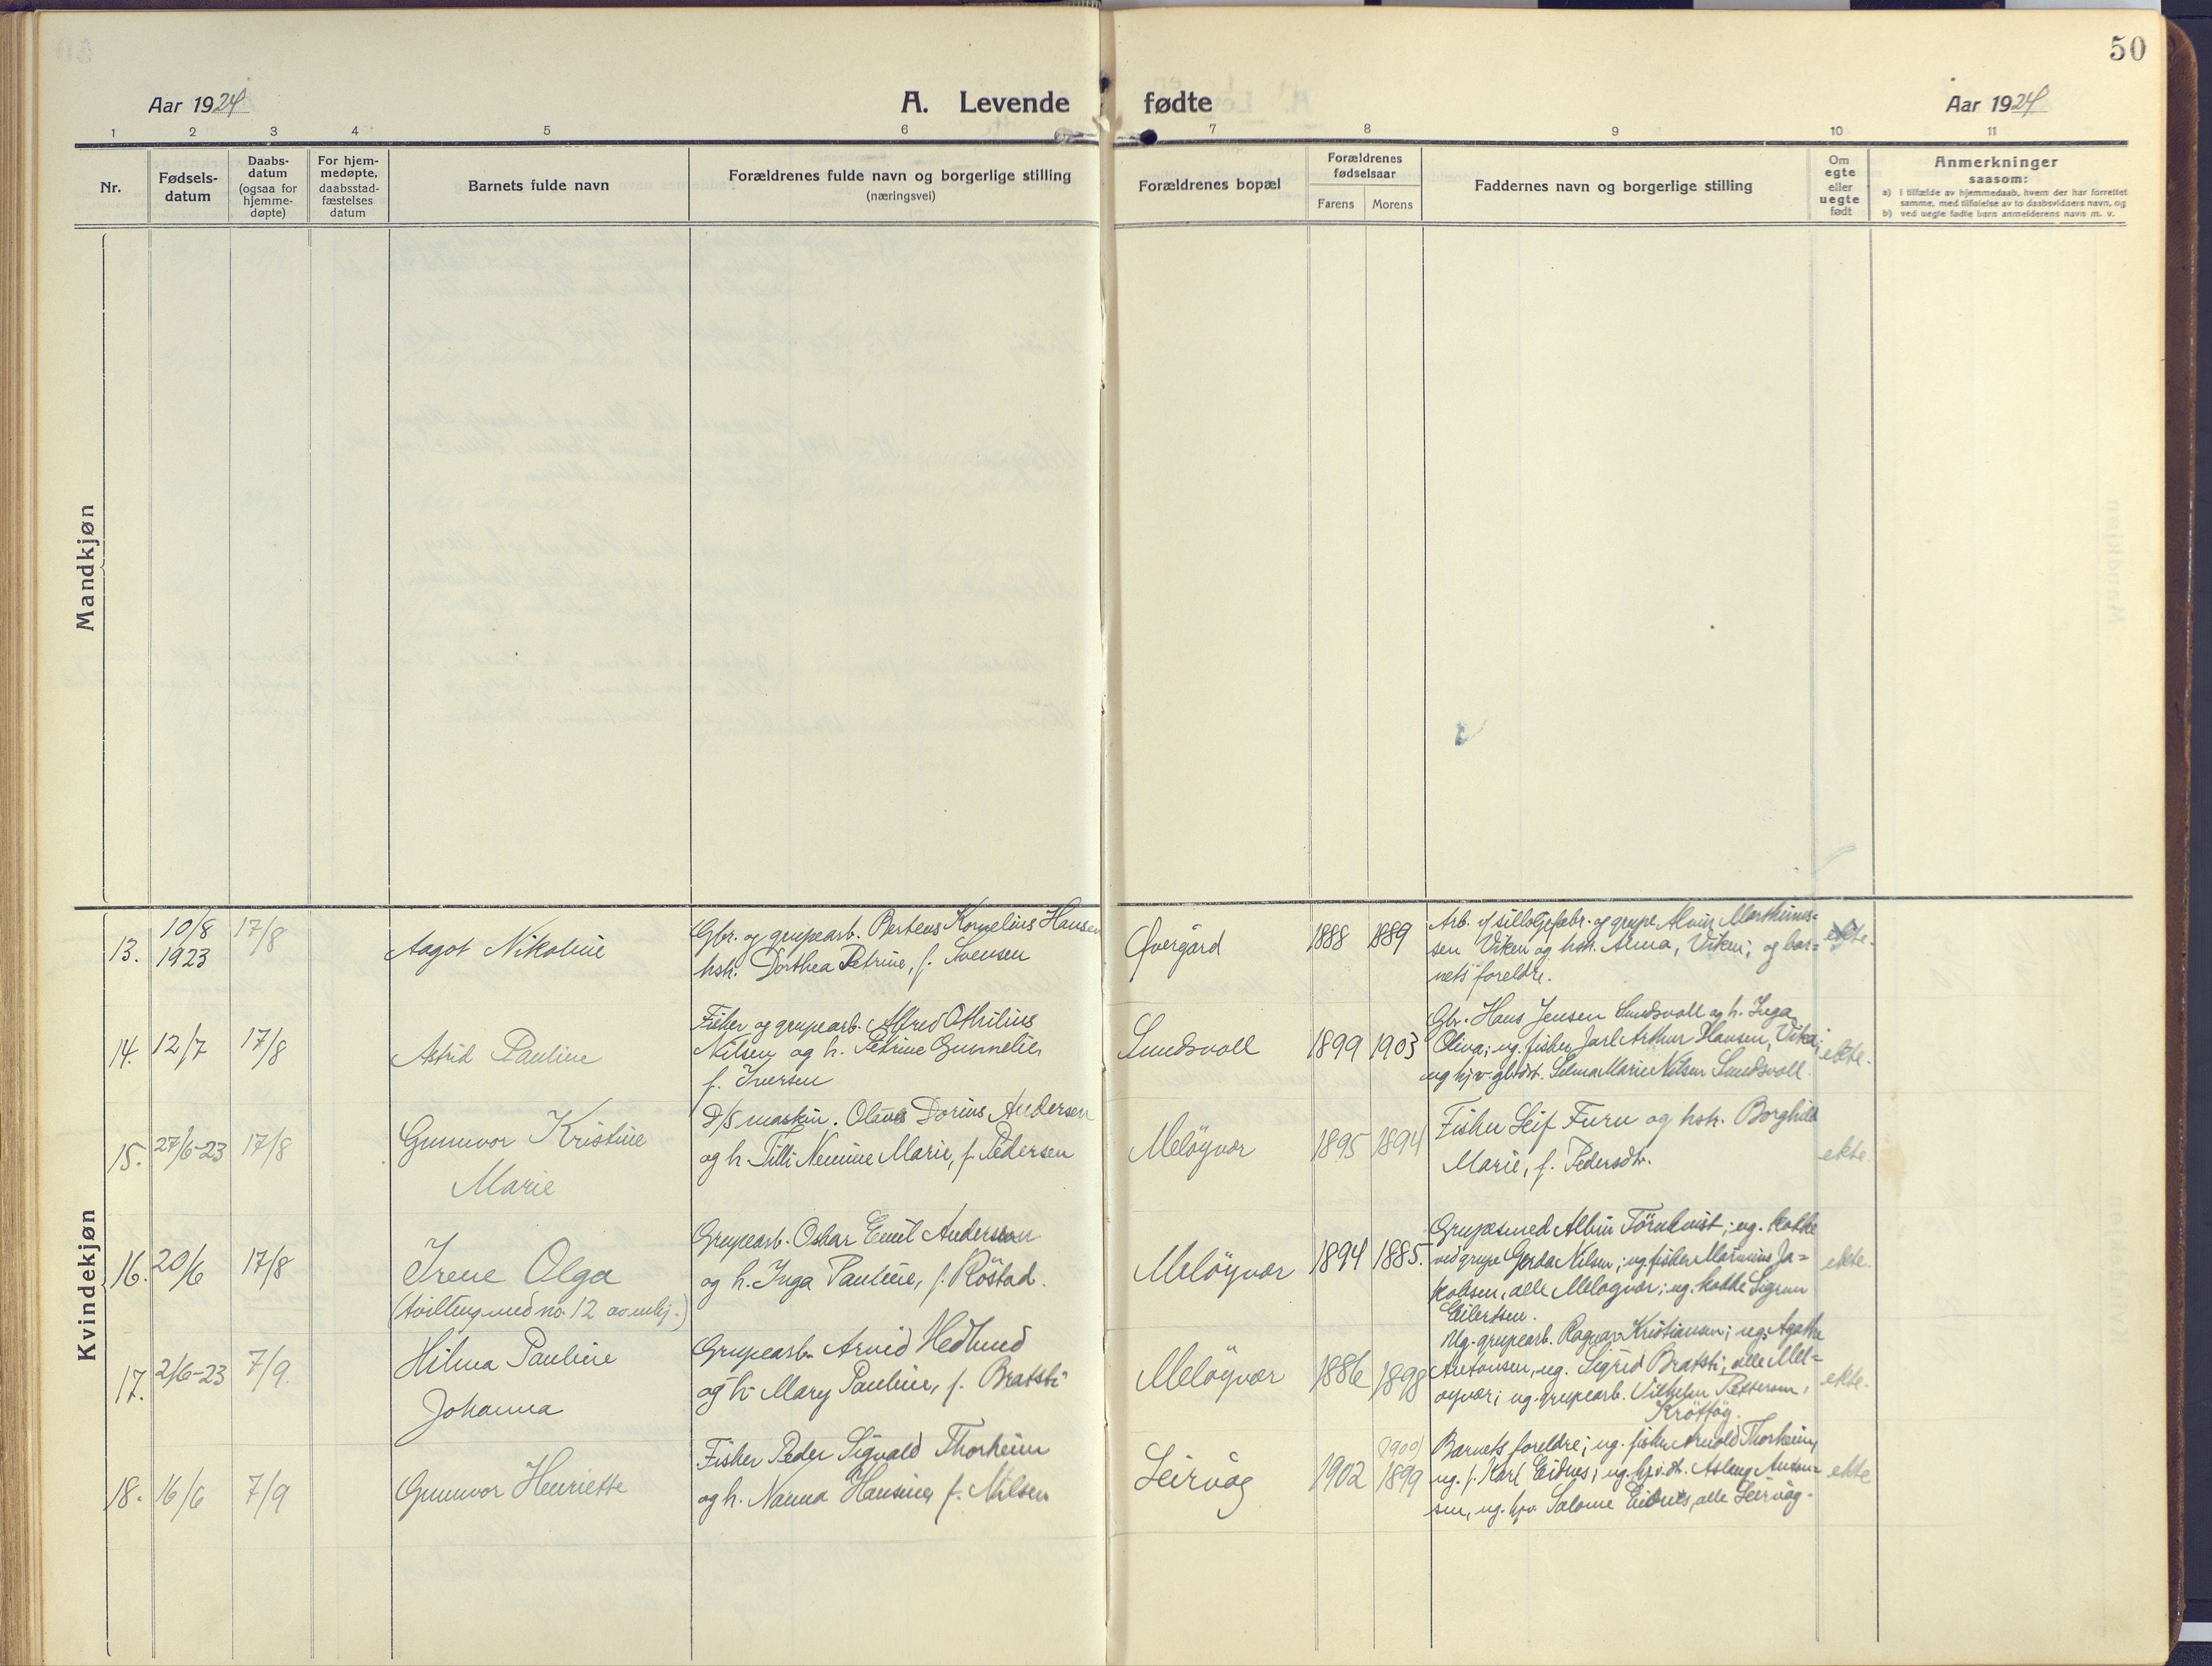 50
Aar 1924
A. Levende fødte
Aar 1924
1 2 3 4 5 6 7 8 9 10 11
Nr.
Fødsels-
datum
Daabs-
datum
(ogsaa for
hjemme-
døpte)
For hjem-
medøpte,
daabsstad-
fæstelses
datum
Barnets fulde navn
Forældrenes fulde navn og borgerlige stilling
(næringsvei)
Forældrenes bopæl
Forældrenes
fødselsaar
Farens Morens
Faddernes navn og borgerlige stilling
Om
egte
eller
uegte
født
Anmerkninger
saasom:
a) i tilfælde av hjemmedaab, hvem der har forrettet
samme, med tilføielse av to daabsvidners navn, og
b) ved uegte fødte barn anmelderens navn m. v.
Mandkjøn
Kvindekjøn
13.
10/8
1923
17/8
Aagot Nikoline
Gbr. og grupearb. Berteus Kornelius Hansen
hstr. Dorthea Petrine, f. Svensen
Øvergård
1888 1889
Arb. v/ sildoljefabr. og grupe Alvin Marthinus=
sen Viken og hstr. Anna, Viken; og bar=
nets foreldre.
ekte.
14. 12/7 17/8
Astrid Pauline
Fisker og grupearb. Alfred Othilius
Nilsen og h. Petrine Gunnelie,
f. Iversen
Sundsvoll
1899 1903
Gbr. Hans Jensen Sundsvoll og h. Inga
Oliva; ug. fisker Jarl Arthur Hansen, Vika;
ug hjv. gbrdtr. Selma Marie Nilsen Sundsvoll.
ekte.
15. 27/6-23 17/8
Gunnvor Kristine
Marie
D/S maskin. Olaus Dorius Andersen
og h. Tilli Nennine Marie, f. Pedersen
Meløyvær
1895 1894
Fisker Leif Furu og hstr. Borghild
Marie, f. Pedersdtr.
ekte.
16. 20/6 17/8
Irene Olga
(tvilling med no. 12 av mkj.)
Grupearb. Oskar Emil Anderson
og h. Inga Pauline, f. Röstad.
Meløyvær
1894 1885.
Grupesmed Albin Törnkvist; ug. kokke
ved grupe Gerda Nilsen; ug. fisker Marinius Ja=
kobsen, alle Meløyvær; ug. kokke Sigrun
Eilertsen.
ekte.
17. 2/6-23 7/9.
Hilma Pauline
Johanna
Grupearb. Arvid Hedlund
og h. Mary Pauline, f. Bratsti
Meløyvær
1886 1898
Ug. grupearb. Ragnar Kristiansen; ug. Agathe
Antonsen, ug. Sigrid Bratsti, alle Mel=
øyvær; ug. grupearb. Vilhelm Petterson,
Krøttøy.
ekte.
18. 16/6 7/9
Gunnvor Henriette
Fisker Peder Sigvald Thorheim
og h. Nanna Hansine, f. Nilsen
Leirvåg
1902
(1900)
1899
Barnets foreldre; ug. fisker Arnold Thorheim,
ug. f. Karl Eidnes; ug. hj.v.dtr. Aslaug Anton=
sen, ug. hjv. Salome Eidnes, alle Leirvåg.
ekte